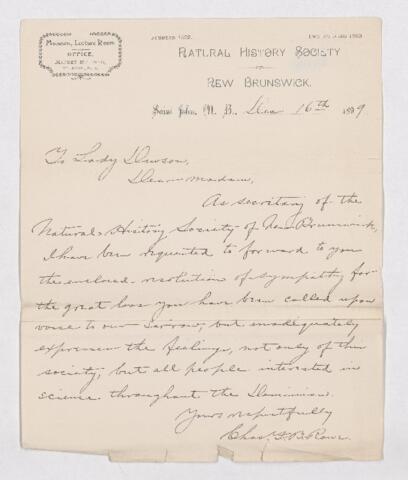 Museum, Lecture Room
OFFICE,
NATURAL HISTORY SOCIETY
OF
NEW BRUNSWICK.
Saint John, N. B., Dec 16th 1899
To Lady Dawson,
Dear Madam,
As secretary of the
Natural History Society of New Brunswick,
I have been requested to forward to you
the enclosed resolution of sympathy for
the great loss you have been called upon
voice to our sorrow, but inadequately
expresses the feelings, not only of this
society, but all people interested in
science throughout the Dominion.
Yours respectfully
Chas.